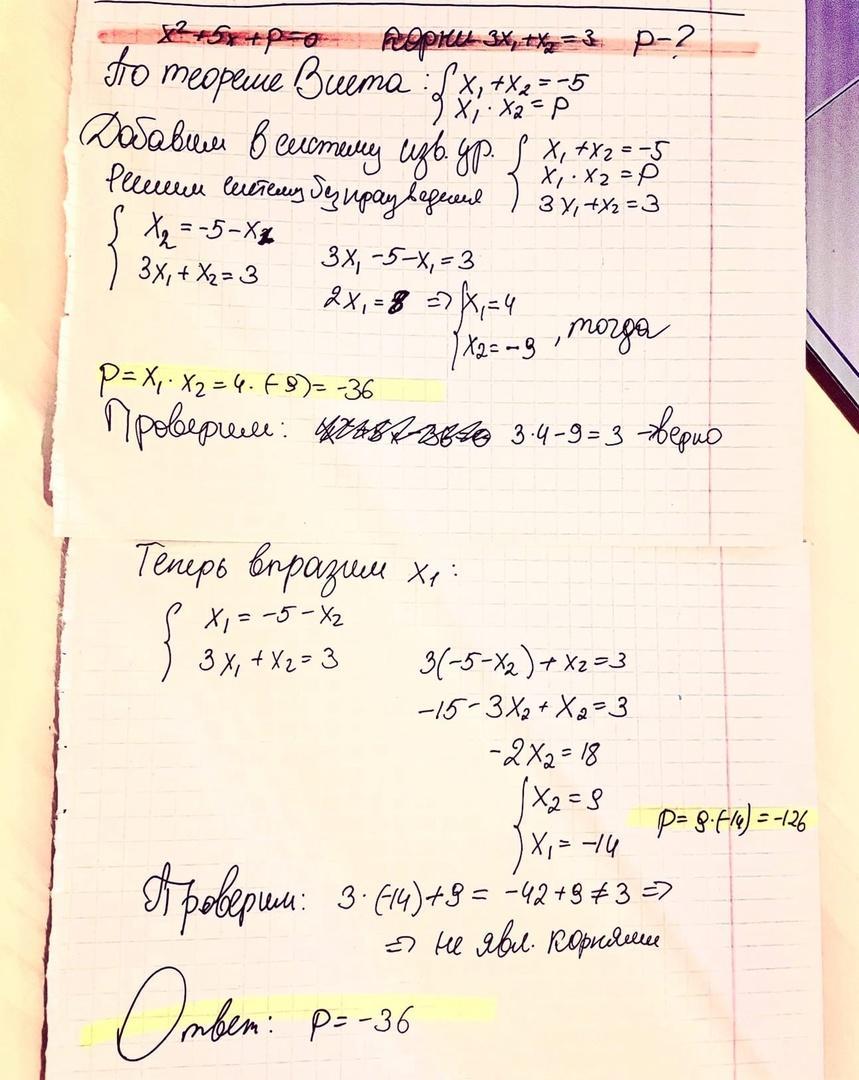 x²+5x+p=0 корни 3x₁+x₂=3 p-?
По теореме Виета: { x₁+x₂=-5
x₁·x₂=p
Добавим в систему изв. ур. { x₁+x₂=-5
x₁·x₂=p
3x₁+x₂=3
Решим систему без произведения
{ x₂=-5-x₁
3x₁+x₂=3
3x₁-5-x₁=3
2x₁=8 => { x₁=4
x₂=-9 , тогда
p=x₁·x₂=4·(-9)=-36
Проверим: 3·4-9=3 → верно
Теперь выразим x₁:
{ x₁=-5-x₂
3x₁+x₂=3
3(-5-x₂)+x₂=3
-15-3x₂+x₂=3
-2x₂=18
{ x₂=9
x₁=-14
p=9·(-14)=-126
Проверим: 3·(-14)+9=-42+9≠3 =>
=> не явл. корнями
Ответ: p=-36